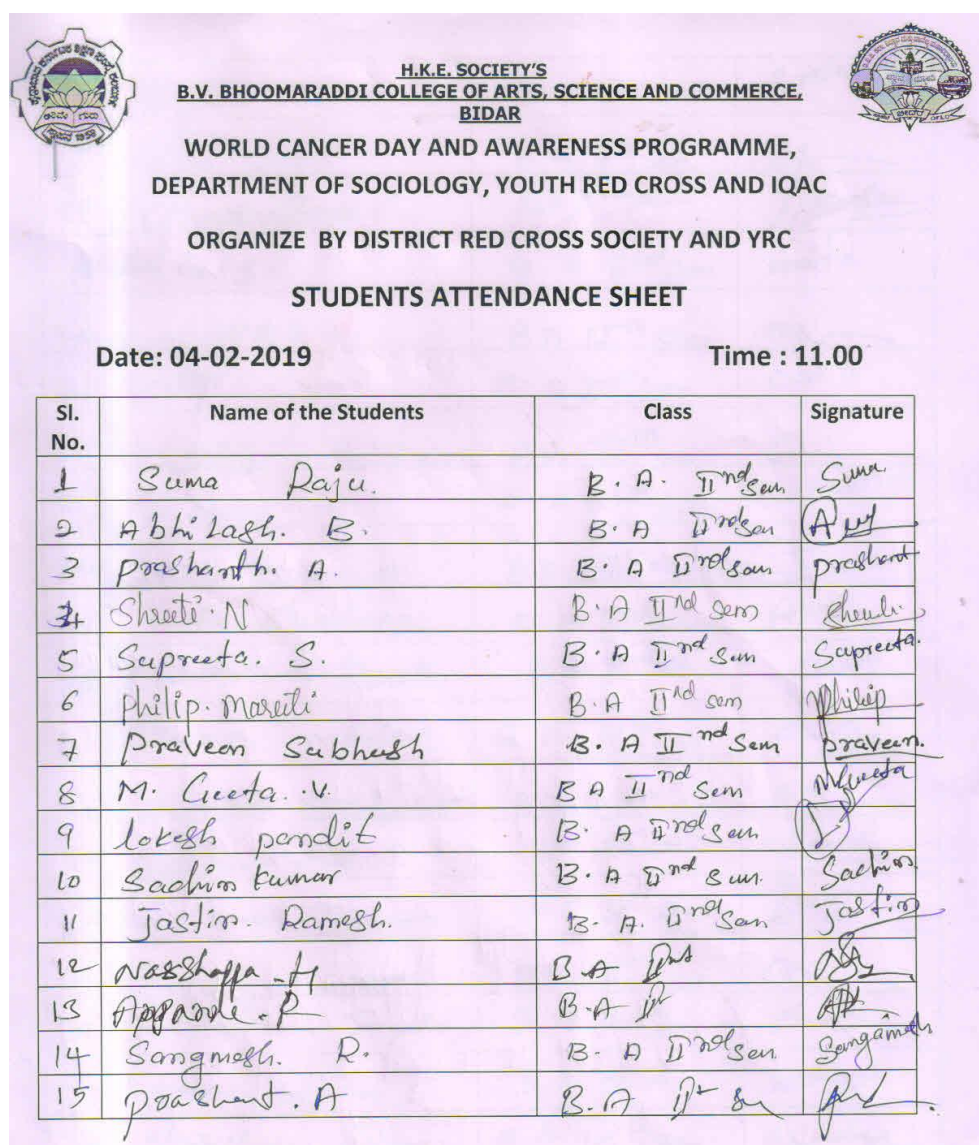 H.K.E. SOCIETY'S
B.V. BHOOMARADDI COLLEGE OF ARTS, SCIENCE AND COMMERCE,
BIDAR
WORLD CANCER DAY AND AWARENESS PROGRAMME,
DEPARTMENT OF SOCIOLOGY, YOUTH RED CROSS AND IQAC
ORGANIZE BY DISTRICT RED CROSS SOCIETY AND YRC
STUDENTS ATTENDANCE SHEET
Date: 04-02-2019 Time : 11.00
Sl. No. Name of the Students Class Signature
1 Suma Raju. B. A. IInd Sem Suma
2 Abhilash. B. B. A IInd Sem
3 Prashanth. A. B. A IInd Sem Prashant
4 N B. A IInd Sem
5 Supreeta. S. B. A IInd Sem Supreeta.
6 Philip. Maruti B. A IInd Sem Philip
7 Praveen Subhash B. A IInd Sem Praveen.
8 M. Geeta. V. B A IInd Sem M Geeta
9 lokesh pandit B. A IInd Sem
10 Sachin Kumar B. A IInd Sem Sachin
11 Jastin. Ramesh. B. A. IInd Sem Jastin
12 B A
13 B. A
14 Sangmesh. R. B. A IInd Sem Sangamesh
15 Prashant. A B. A